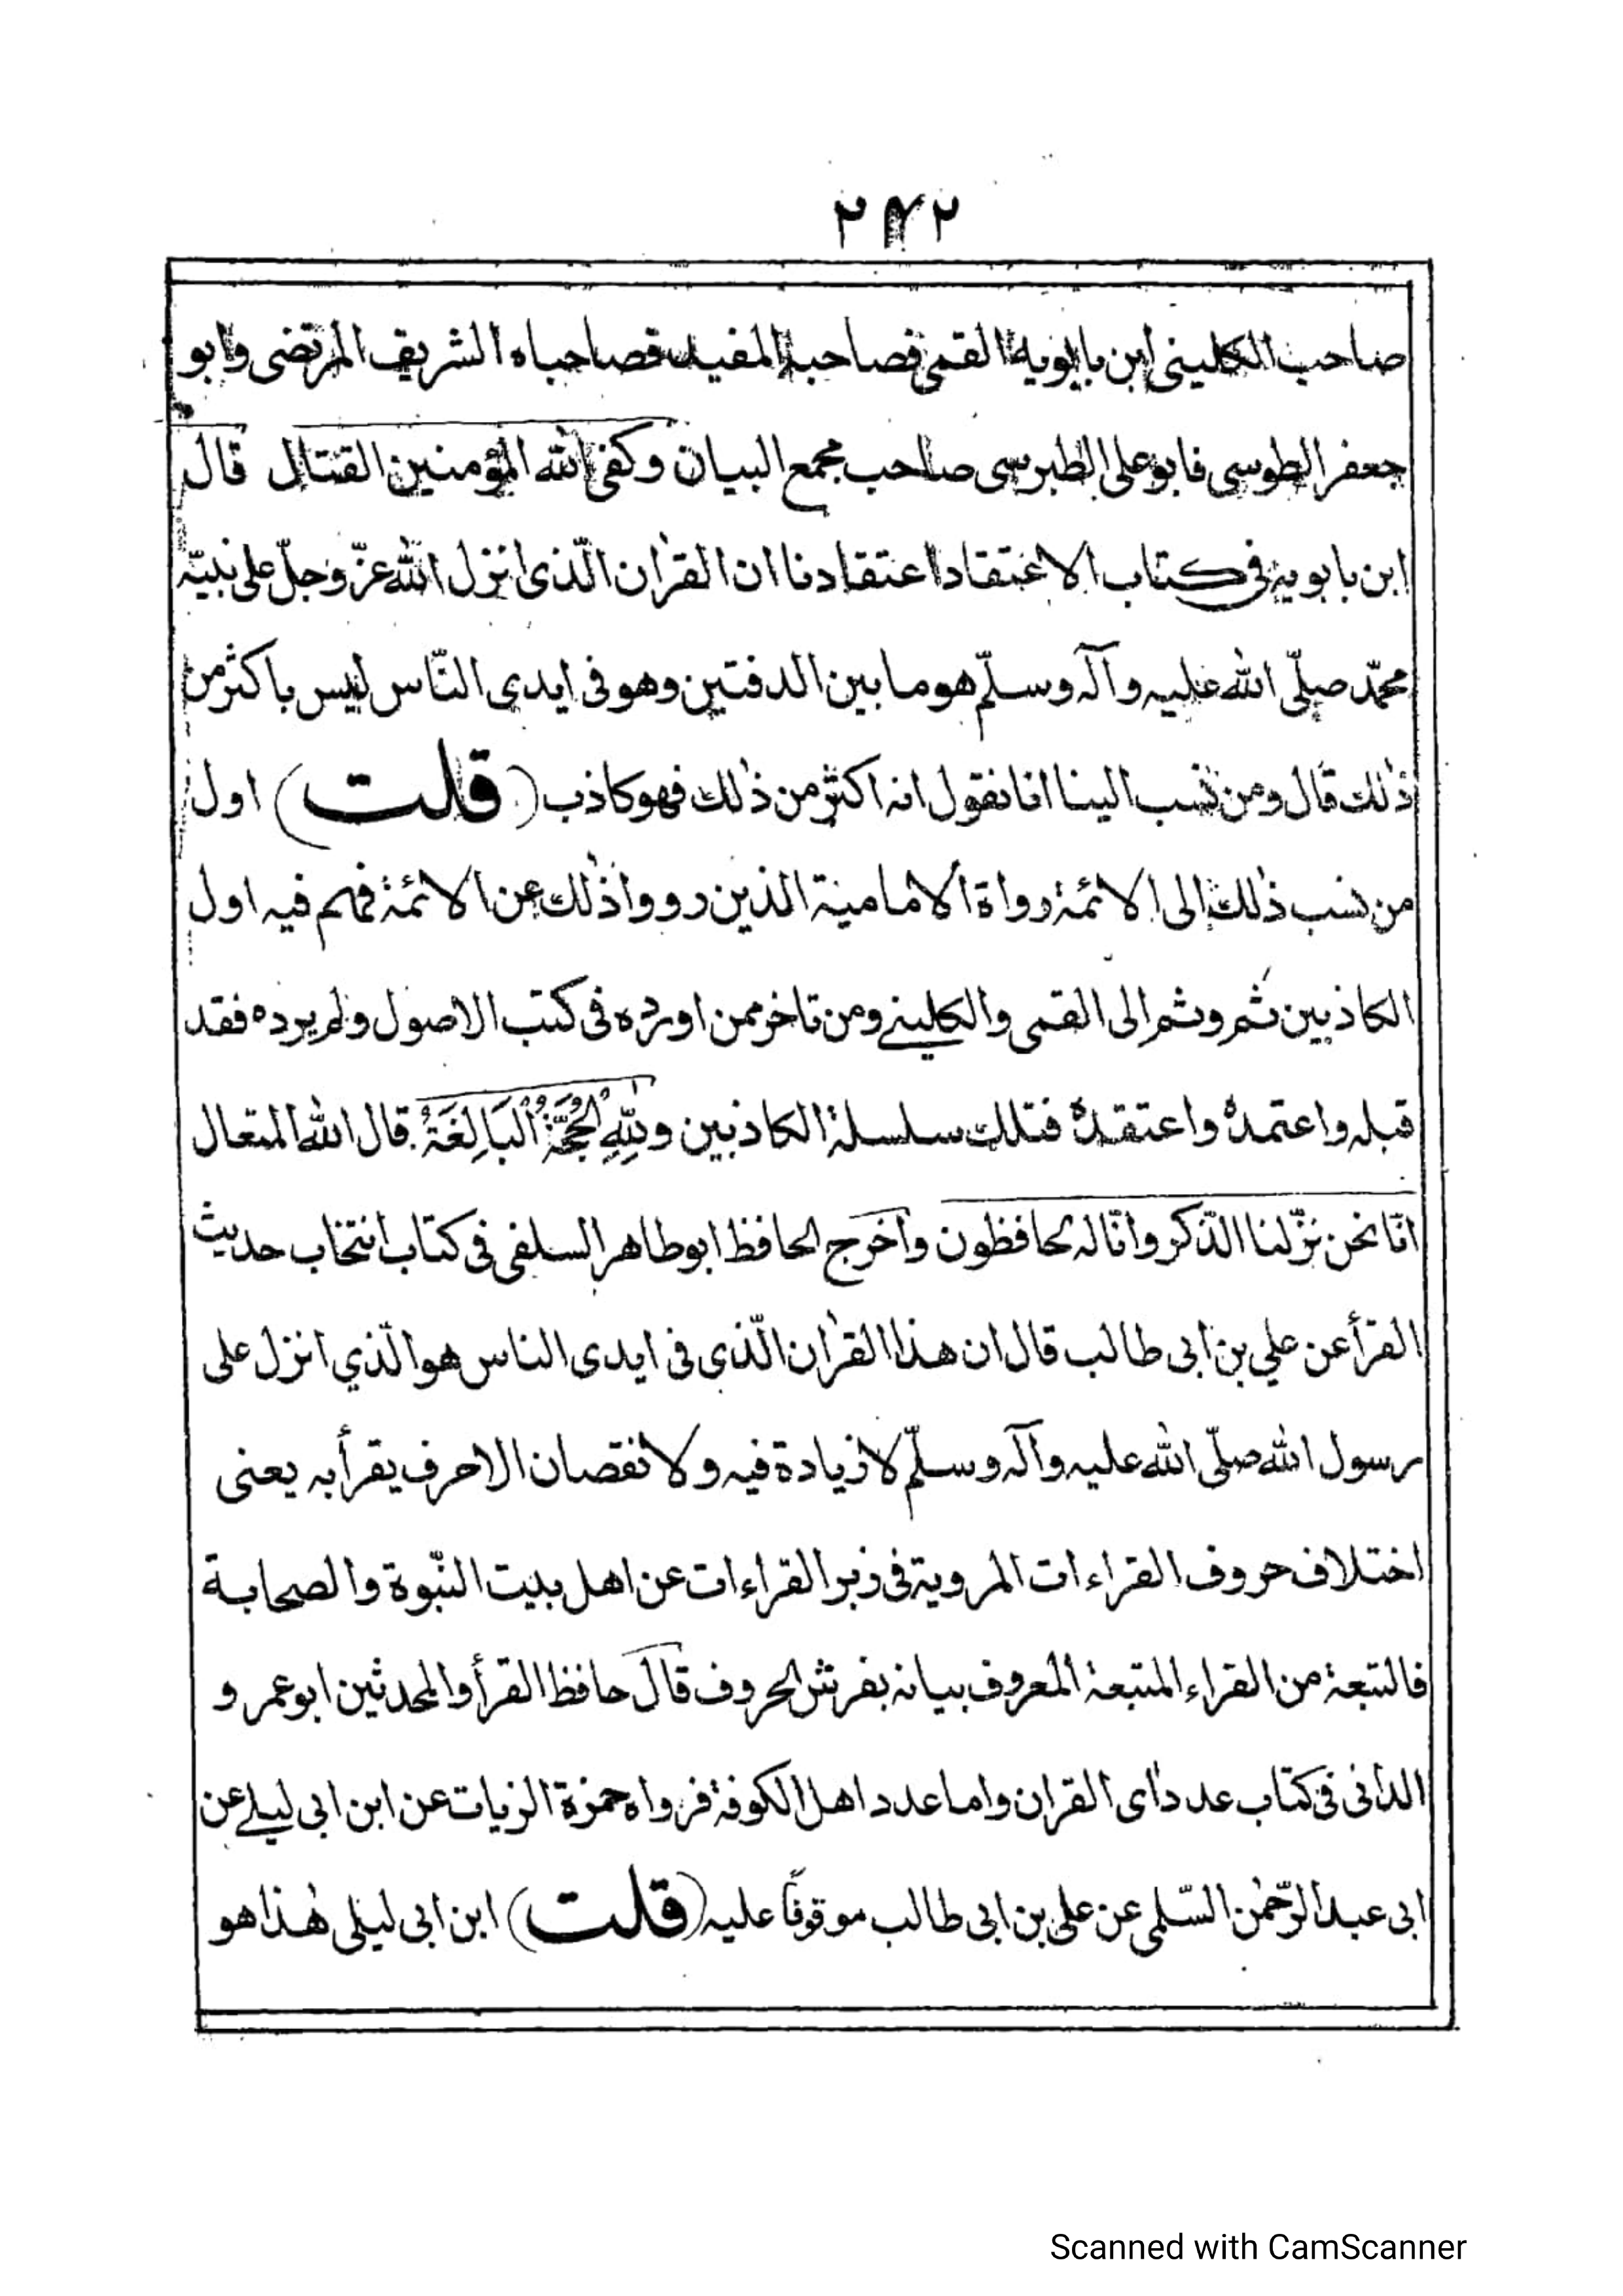 ٢٤٢
صاحب الكليني ابن بابويه القمي فصاحبه المفيد فصاحباه الشريف المرتضى وابو
جعفر الطوسى فابو على الطبرسى صاحب مجمع البيان وكفى الله المؤمنين القتال قال
ابن بابويه فى كتاب الاعتقاد اعتقادنا ان القرٰان الّذى انزل اللّٰه عزّ وجلّ على نبيّه
محمّد صلّى اللّٰه عليه وآلٓه وسلّم هو ما بين الدفتين وهو فى ايدى النّاس ليس باكثر من
ذٰلك قال ومن نسب الينا انا نقول انه اكثر من ذٰلك فهو كاذب (قلت) اول
من نسب ذٰلك الى الائمة رواة الامامية الذين رووا ذٰلك عن الائمة فهم فيه اول
الكاذبين ثم وثم الى القمى والكلينے ومن تاخر ممن اورده فى كتب الاصول ولم يرده فقد
قبله واعتمدهٗ واعتقدهٗ فتلك سلسلة الكاذبين ولِلّٰهِ الْحُجَّةُ الْبَالِغَةُ قال اللّٰه المتعال
انّا نحن نزّلنا الذّكر وانّا له لحافظون واخرج الحافظ ابو طاهر السلفى فى كتاب انتخاب حديث
القرأ عن علي بن ابى طالب قال ان هذا القرٰان الّذى فى ايدى الناس هو الّذي انزل على
رسول اللّٰه صلّى اللّٰه عليه وآلٓه وسلّم لا زيادة فيه ولا نقصان الاحرف يقرأ به يعنى
اختلاف حروف القراءات المروية فى زبر القراءات عن اهل بيت النّبوة والصحابة
فالتبعة من القراء المتبعة المعروف بيانه بفرش الحروف قال حافظ القرأ والمحدثين ابو عمر و
الدانى فى كتاب عدد اى القران واما عدد اهل الكوفة فرواه حمزة الزيات عن ابن ابى ليلے عن
ابى عبد الرّحمٰن السّلمى عن على بن ابى طالب موقوفًا عليه (قلت) ابن ابى ليلى هٰذا هو
Scanned with CamScanner